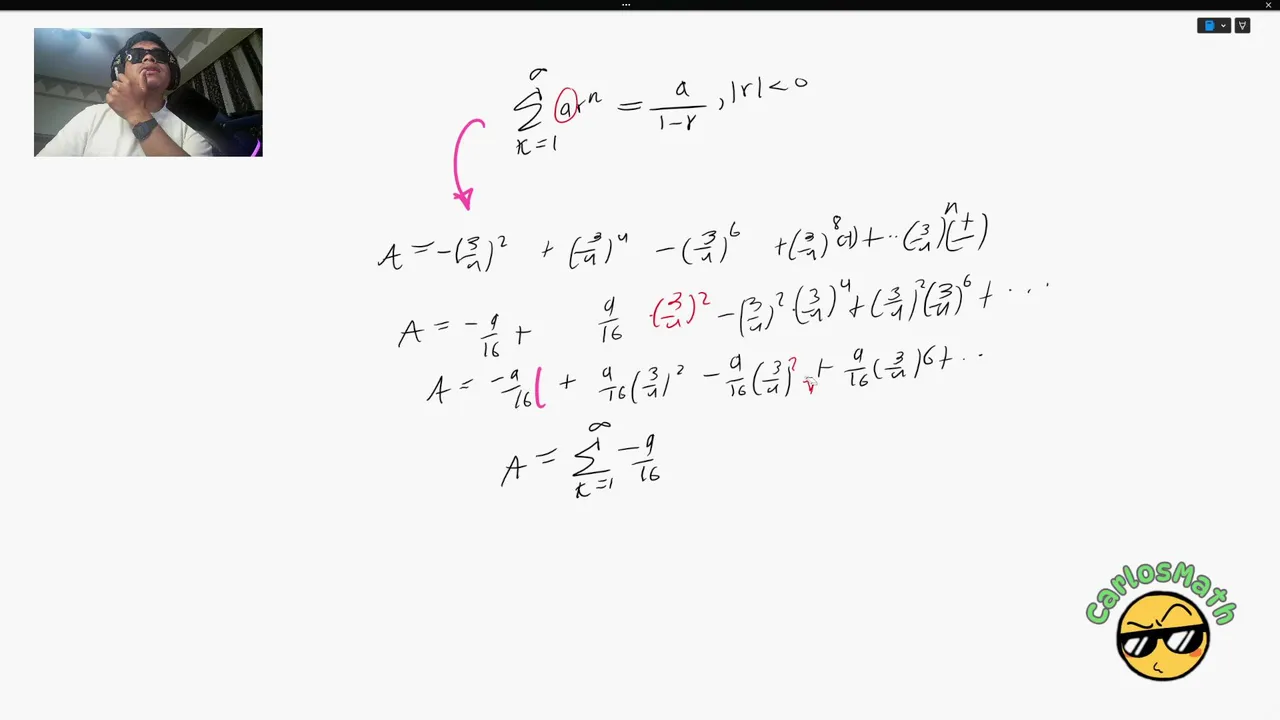 ∞ ∑ k=1 ar^n = a/(1-r), |r| < 0
A = -(3/4)^2 + (3/4)^4 - (3/4)^6 + (3/4)^8 (1) + ·· (3/4)^n (+/-)
A = -9/16 + 9/16 · (3/4)^2 - (3/4)^2 · (3/4)^4 + (3/4)^2 (3/4)^6 + ···
A = -9/16 ( + 9/16 (3/4)^2 - 9/16 (3/4)^2 + 9/16 (3/4)^6 + ··
A = ∞ ∑ k=1 -9/16
CarlosMath